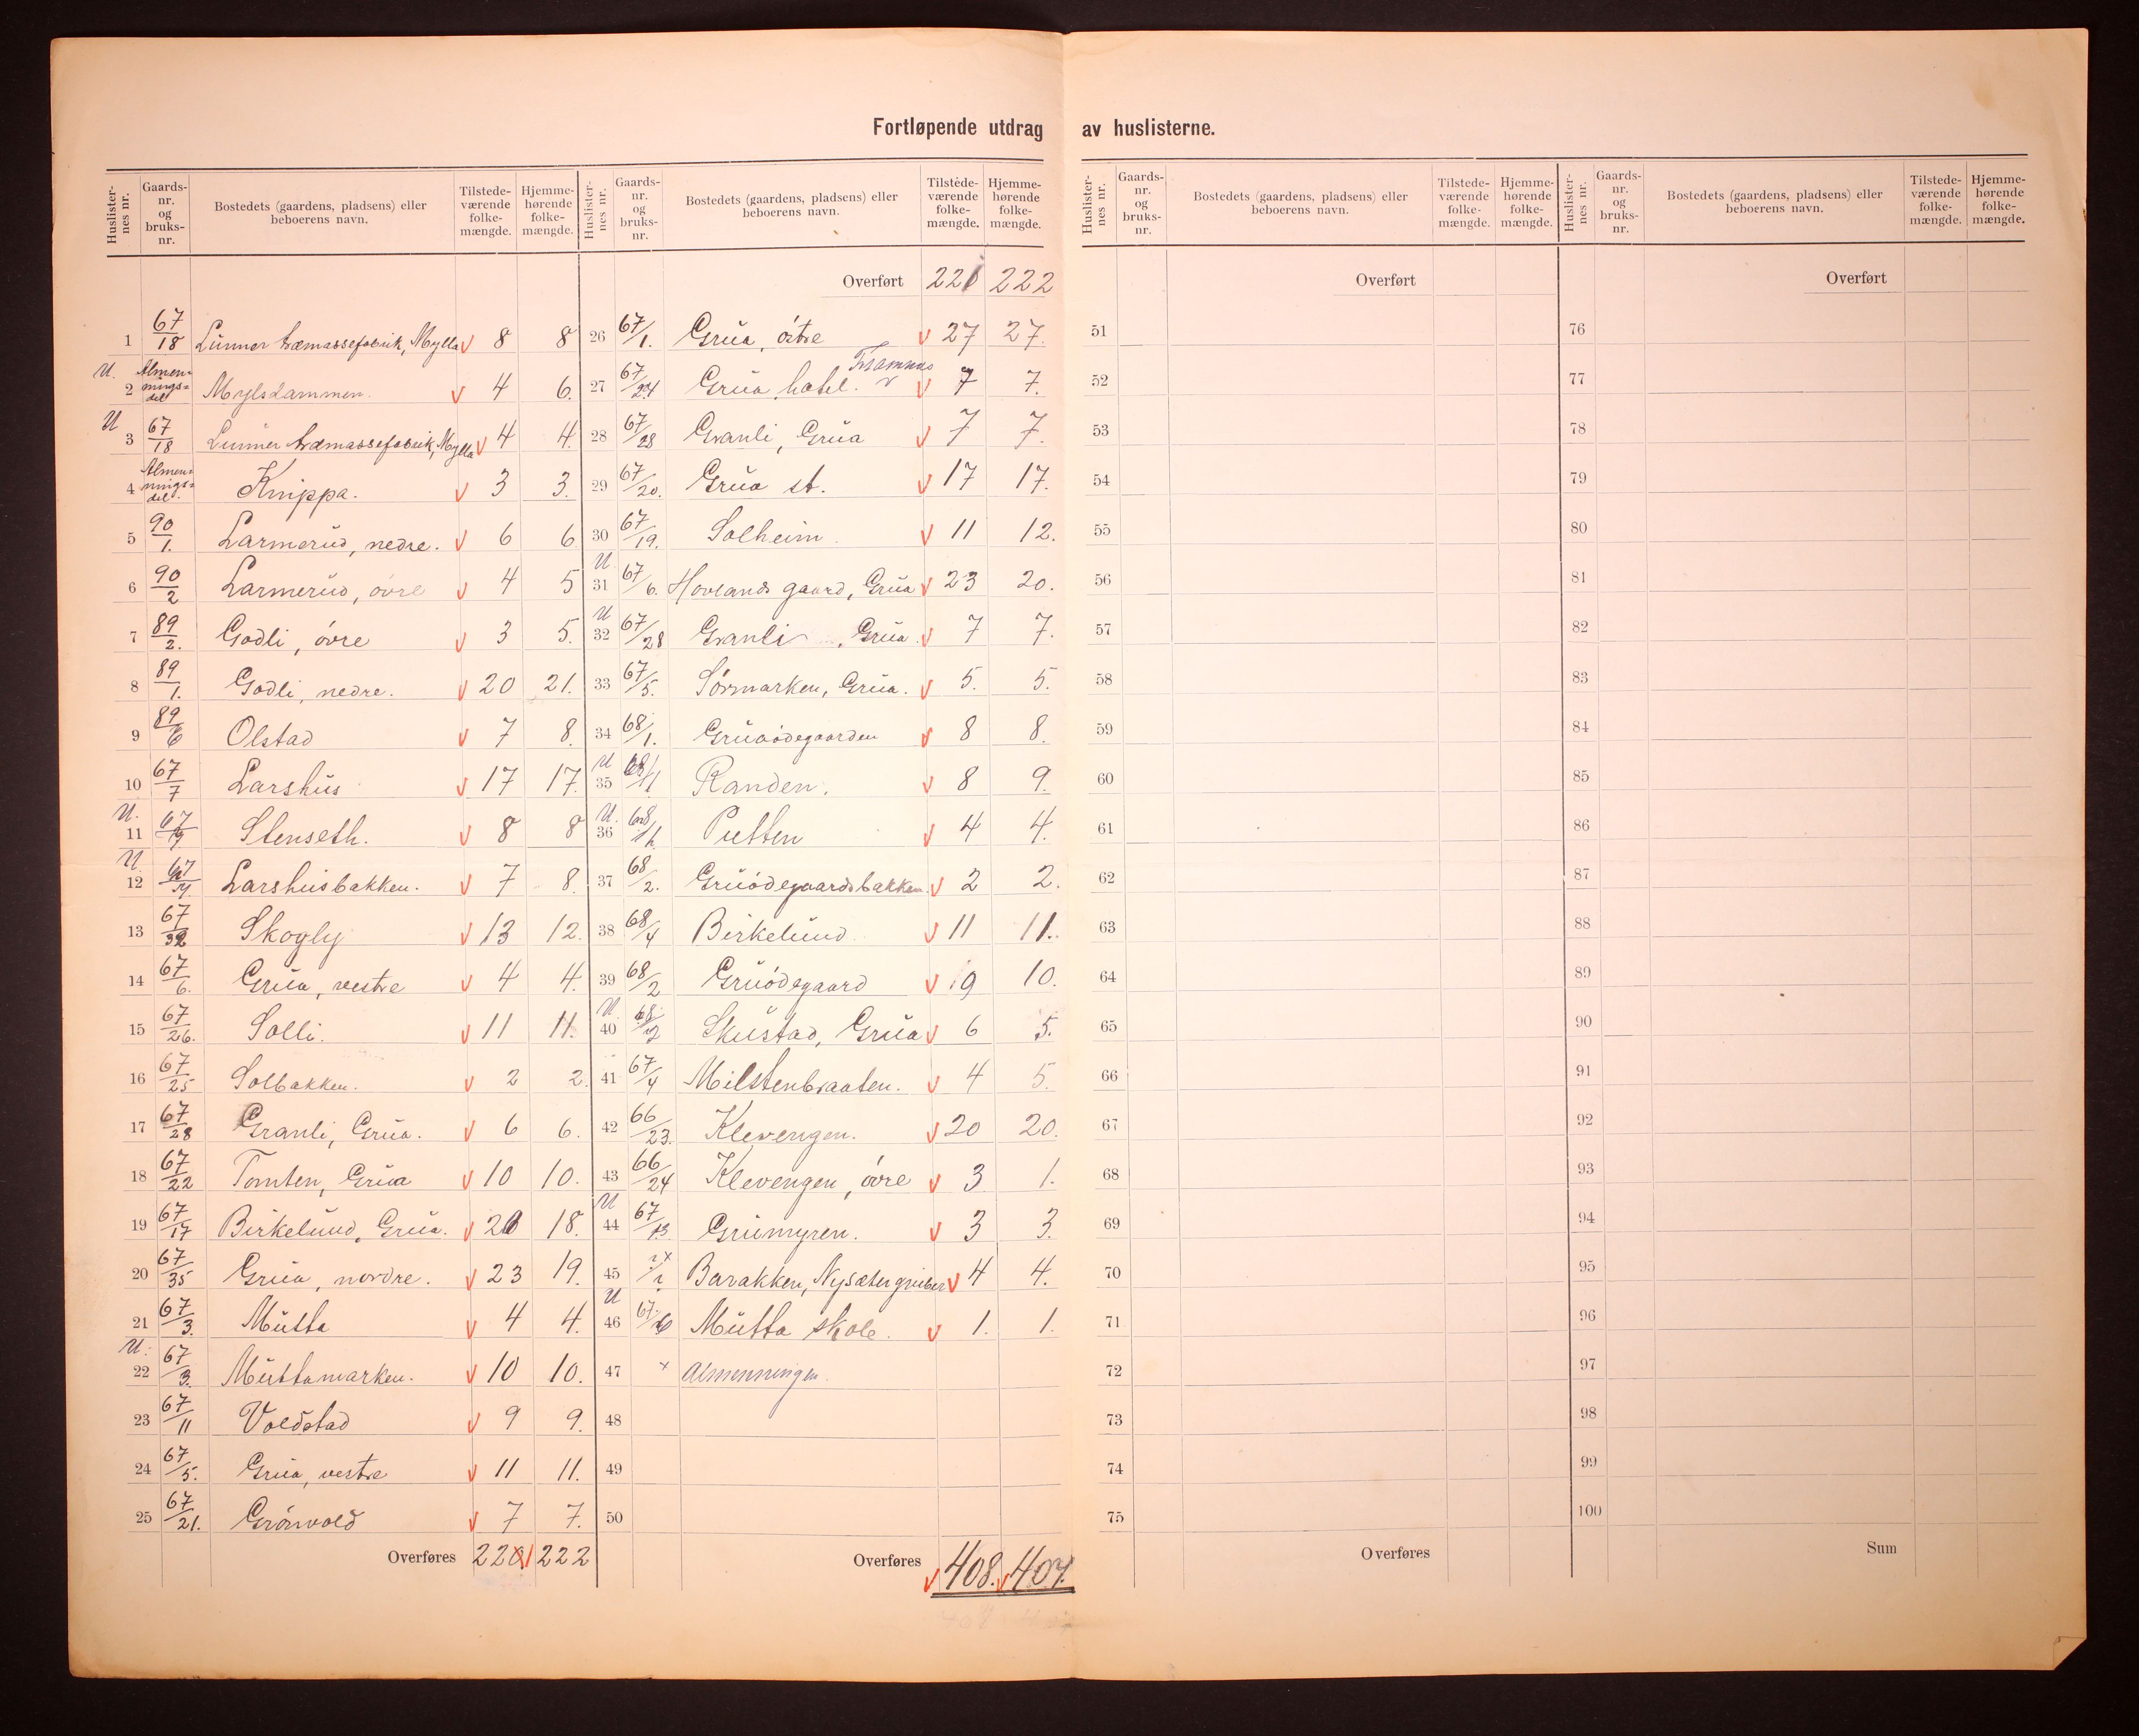 Fortløpende utdrag av huslisterne.
Huslister- nes nr. Gaards- nr. og bruks- nr. Bostedets (gaardens, pladsens) eller beboerens navn. Tilstede- værende folke- mængde. Hjemme- hørende folke- mængde.
1 67/18 Lunner træmassefabrik, Mylla V 8 8
U. 2 Almen- nings- del Mylsdammen. V 4 6.
U 3 67/18 Lunner træmassefabrik, Mylla V 4 4.
4 Almen- nings- del. Knippa. V 3 3.
5 90/1. Larmerud, nedre. V 6 6
6 90/2 Larmerud, øvre V 4 5
7 89/2. Godli, øvre V 3 5.
8 89/1. Godli, nedre. V 20 21.
9 89/6 Olstad V 7 8.
10 67/7 Larshus V 17 17.
U. 11 67/19 Stenseth. V 8 8
U. 12 67/14 Larshusbakken. V 7 8.
13 67/32 Skogly V 13 12.
14 67/6. Grua, vestre V 4 4.
15 67/26. Solli. V 11 11.
16 67/25 Solbakken. V 2 2.
17 67/28 Granli, Grua. V 6 6.
18 67/22 Tomten, Grua V 10 10.
19 67/17 Birkelund, Grua. V 20 18.
20 67/35 Grua, nordre. V 23 19.
21 67/3. Mutta V 4 4.
U. 22 67/3. Muttamarken. V 10 10.
23 67/11 Voldstad V 9 9.
24 67/5. Grua, vestre V 11 11.
25 67/21. Grønvold V 7 7.
Overføres 221 222
Huslister- nes nr. Gaards- nr. og bruks- nr. Bostedets (gaardens, pladsens) eller beboerens navn. Tilstede- værende folke- mængde. Hjemme- hørende folke- mængde.
Overført 221 222
26 67/1. Grua, østre V 27 27.
Framnes
27 67/24 Grua hotel. V V 7 7.
28 67/28 Granli, Grua V 7 7.
29 67/20. Grua st. V 17 17.
30 67/19. Solheim V 11 12.
U 31 67/6. Hovlands gaard, Grua V 23 20.
U 32 67/28 Granli, Grua. V 7 7.
33 67/5. Sørmarken, Grua. V 5. 5.
34 68/1. Gruaødegaarden V 8 8.
U 35 68/1 Randen. V 8 9.
U. 36 68/1. Putten V 4 4.
37 68/2. Gruødegaardsbakken. V 2 2.
38 68/4 Birkelund V 11 11.
39 68/2 Gruødegaard V 9 10.
U. 40 68/2 Skustad, Grua V 6 5.
41 67/4 Milstenbraaten. V 4 5.
42 66/23. Klevengen. V 20 20.
43 66/24 Klevengen, øvre V 3 1.
U 44 67/13 Gruemyren. V 3 3.
45 Barakken, Nysætergruber V 4 4.
U 46 67/6 Mutta skole. V 1. 1.
47 x Almenningen.
48
49
50
Overføres V 408. V 407.
Huslister- nes nr. Gaards- nr. og bruks- nr. Bostedets (gaardens, pladsens) eller beboerens navn. Tilstede- værende folke- mængde. Hjemme- hørende folke- mængde.
Overført
51
52
53
54
55
56
57
58
59
60
61
62
63
64
65
66
67
68
69
70
71
72
73
74
75
Overføres
Huslister- nes nr. Gaards- nr. og bruks- nr. Bostedets (gaardens, pladsens) eller beboerens navn. Tilstede- værende folke- mængde. Hjemme- hørende folke- mængde.
Overført
76
77
78
79
80
81
82
83
84
85
86
87
88
89
90
91
92
93
94
95
96
97
98
99
100
Sum